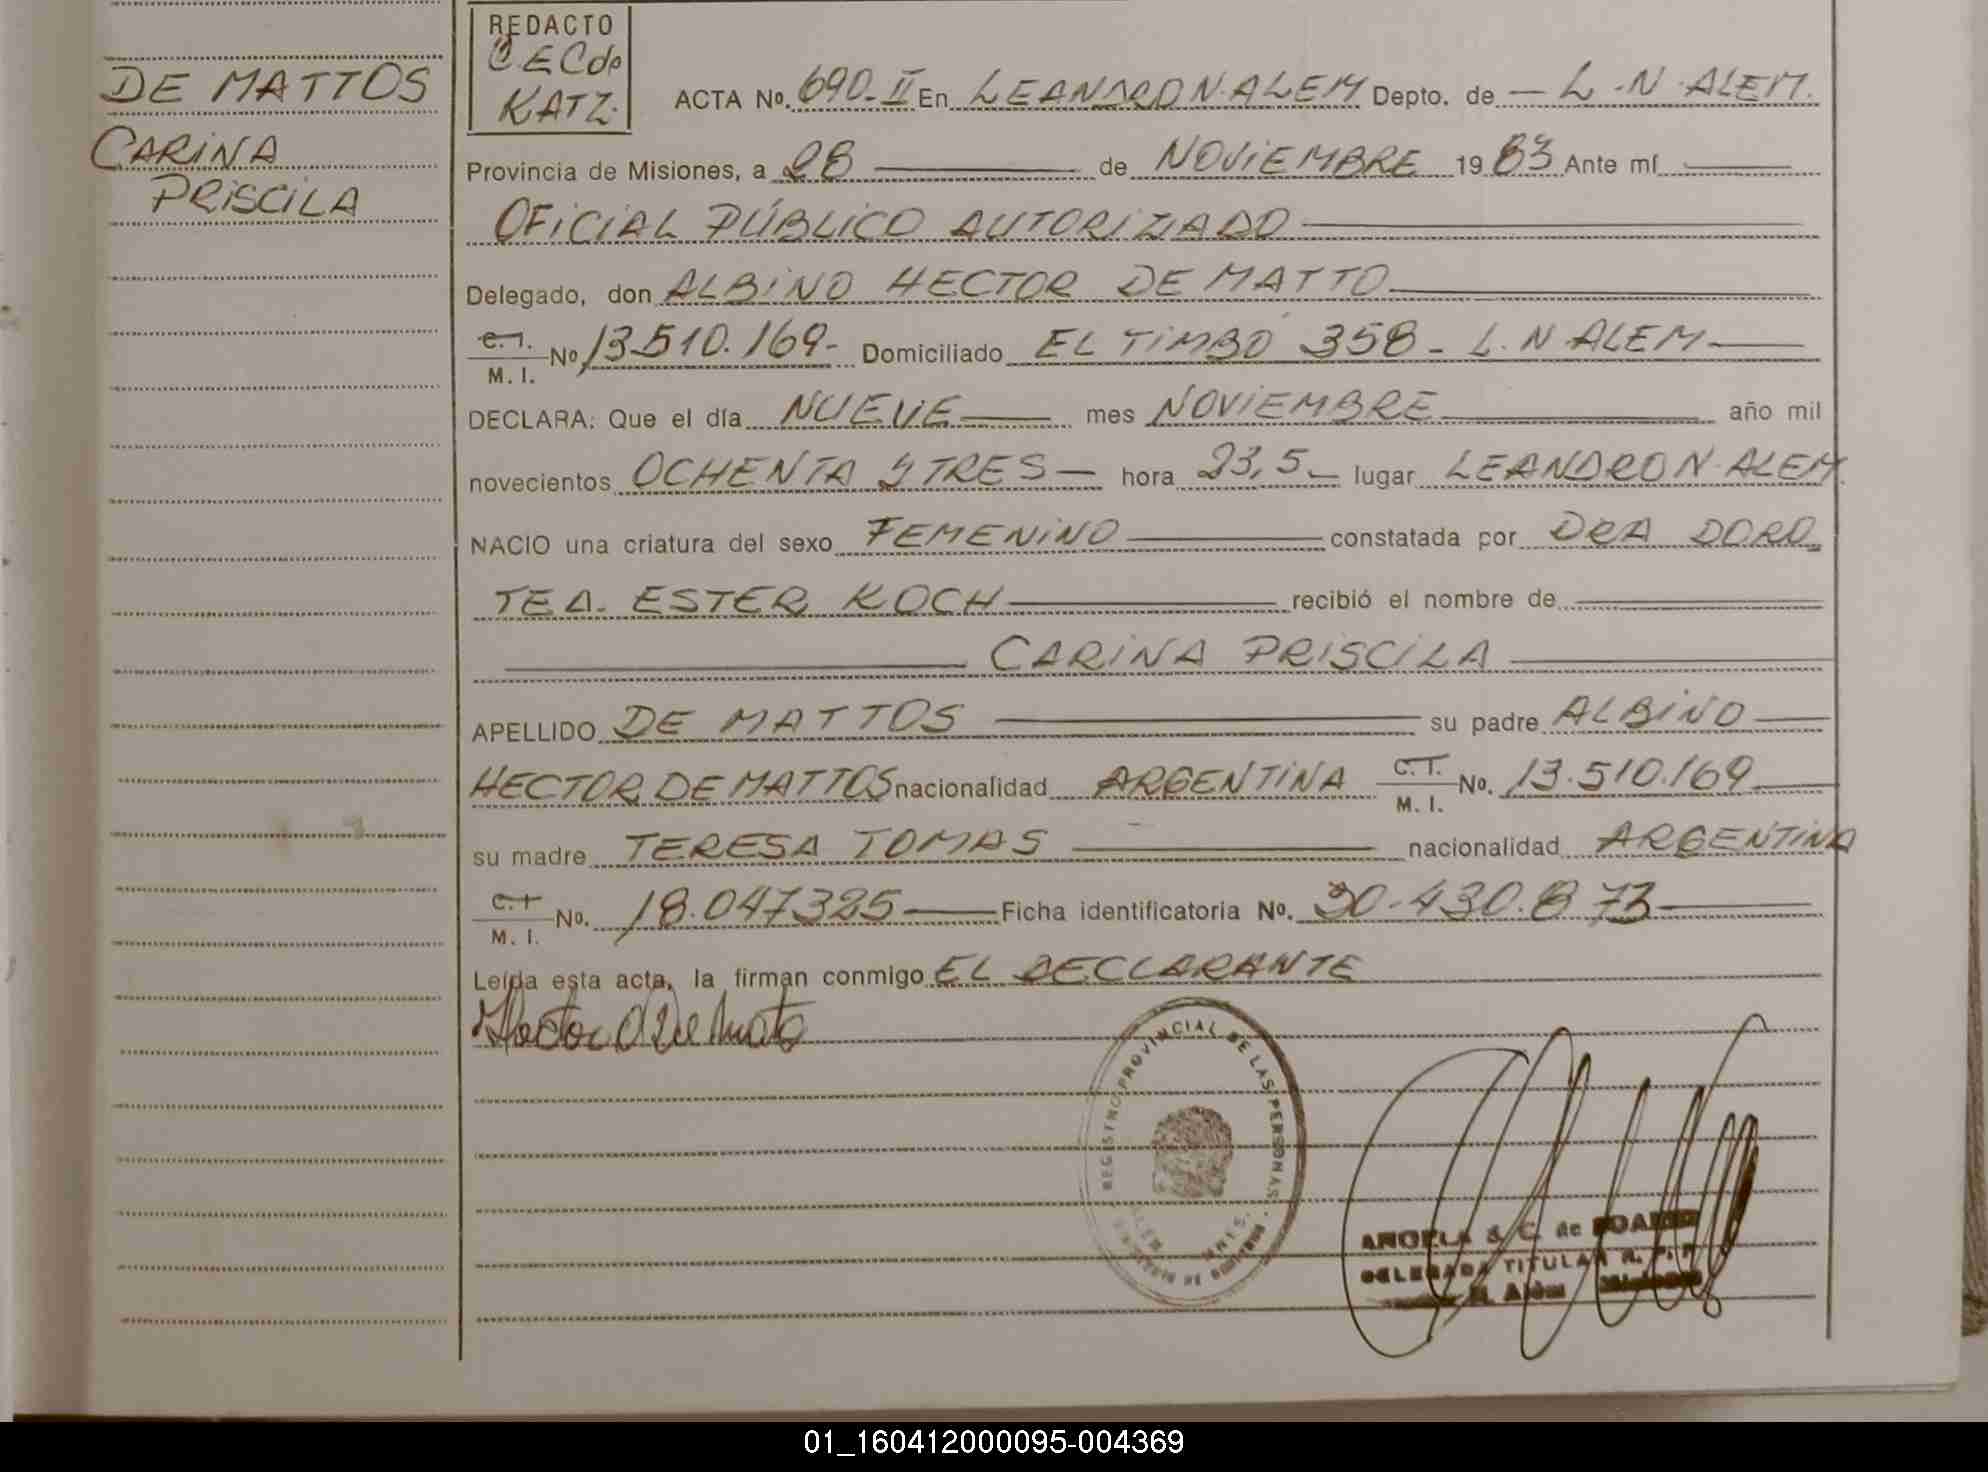 DE MATTOS
CARINA
PRISCILA
REDACTO
C EC de
KATZ.
ACTA Nº. 690-II En LEANDRO N. ALEM Depto. de L.N. ALEM.
Provincia de Misiones, a 28 de NOVIEMBRE 1983 Ante mí
OFICIAL PÚBLICO AUTORIZADO
Delegado, don ALBINO HECTOR DE MATTO
C.I. M. I. Nº 13.510.169- Domiciliado EL TIMBÓ 358 - L.N ALEM
DECLARA: Que el día NUEVE mes NOVIEMBRE año mil
novecientos OCHENTA Y TRES hora 23,5 lugar LEANDRO N. ALEM
NACIO una criatura del sexo FEMENINO constatada por DRA DORO
TEA. ESTER KOCH recibió el nombre de
CARINA PRISCILA
APELLIDO DE MATTOS su padre ALBINO
HECTOR DE MATTOS nacionalidad ARGENTINA C.I. M. I. No. 13.510.169
su madre TERESA TOMAS nacionalidad ARGENTINA
C.I. M. I. No. 18.047325 Ficha identificatoria No. 30.430.873
Leída esta acta, la firman conmigo EL DECLARANTE
Hector De Mato
REGISTRO PROVINCIAL DE LAS PERSONAS
ANGELA S. C. de
DELEGADA TITULAR R. P. P
N. Alem Misiones
01_160412000095-004369